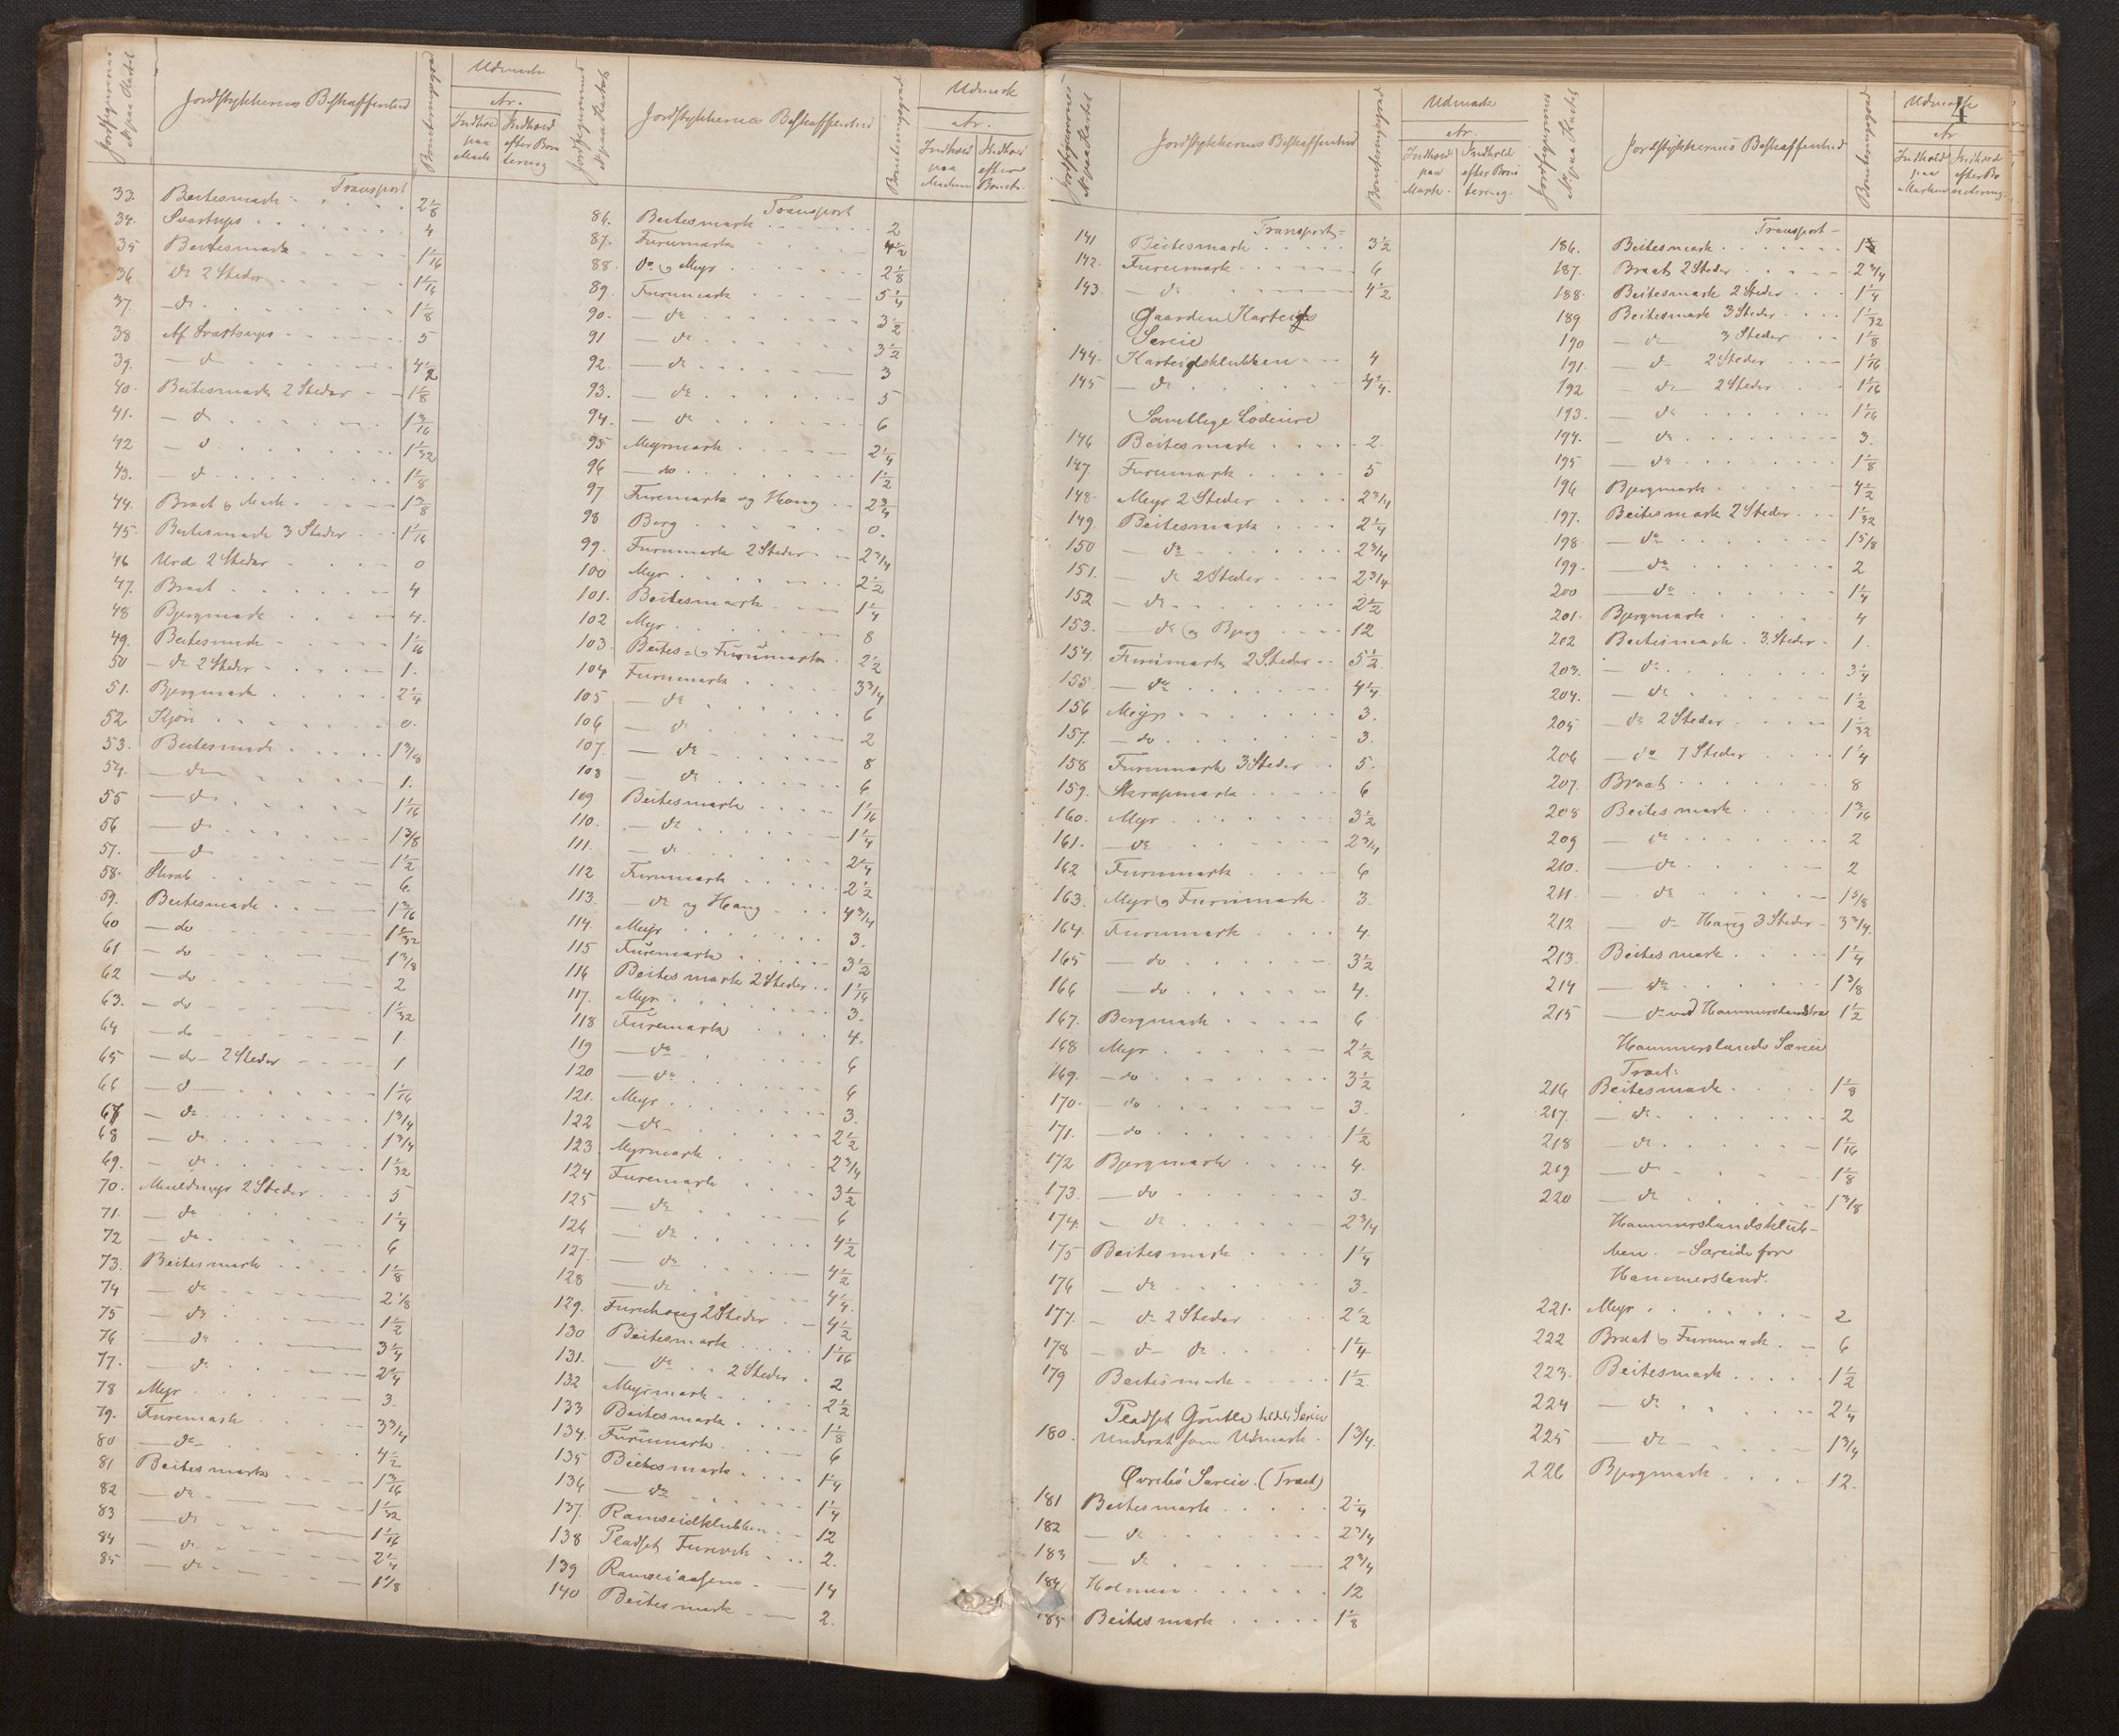 Jordstykkernes Beskaffenhed
Bonteringsgrad
Udmark
Ar.
Indhold paa Mark
Indhold efter Bontering
Transport
33. Beitesmark 2 1/8
34. Svartmyr 4
35 Beitesmark 1 1/16
36 do 2 Steder 1 1/16
37. do 1 1/8
38 Af Svartmyr 5
39. do 4 1/2
40. Beitesmark 2 Steder 1 1/8
41. do 1 3/16
42 do 1 1/32
43. do 1 1/8
44. Braat og Mark 1 3/8
45. Beitesmark 3 Steder 1 1/16
46 Urd 2 Steder 0
47. Braat 4
48 Bjergmark 4.
49. Beitesmark 1 1/16
50 do 2 Steder 1.
51. Bjergmark 2 1/4
52. 0.
53. Beitesmark 1 3/8
54. do 1.
55 do 1 1/16
56 do 1 3/8
57. do 1 1/2
58. Skrab 6.
59. Beitesmark 1 3/16
60 do 1 1/32
61 do 1 3/8
62 do 2
63. do 1 1/32
64 do 1
65 do 2 Steder 1
66 do 1 1/16
67 do 1 3/4
68 do 1 3/4
69. do 1 1/32
70. Muldmyr 2 Steder 5
71. do 1 1/4
72 do 6
73. Beitesmark 1 1/8
74 do 2 1/8
75 do 1 1/2
76 do 3 1/4
77. do 2 1/4
78 Myr 3.
79. Furemark 3 3/4
80 do 4 1/2
81 Beitesmark 1 3/16
82 do 1 1/32
83 do 1 1/16
84 do 2 1/4
85 do 1 1/8
Jordstykkernes Beskaffenhed
Bonteringsgrad
Udmark
Ar.
Transport
86. Beitesmark 2
87. Furumark 4 1/2
88. do og Myr 2 1/8
89. Furumark 5 1/4
90. do 3 1/2
91 do 3 1/2
92. do 3
93. do 5
94. do 6
95 Myrmark 2 1/4
96 do 1 1/2
97 Furemark og Haug 2 3/4
98 Berg 0.
99. Furumark 2 Steder 2 3/4
100 Myr 2 1/2
101. Beitesmark 1 1/4
102 Myr 8
103. Beites- og Furumark 2 1/2
104 Furumark 3 3/4
105 do 6
106 do 2
107. do 8
108 do 6
109 Beitesmark 1 1/16
110. do 1 1/4
111. do 2 1/4
112 Furumark 2 1/2
113. do og Haug 4 3/4
114. Myr 3.
115 Furemark 3 1/2
116 Beitesmark 2 Steder 1 1/16
117. Myr 3.
118 Furemark 4.
119 do 6
120 do 6
121. Myr 3.
122 do 2 1/2
123 Myrmark 2 3/4
124 Furemark 3 1/2
125 do 6
126 do 4 1/2
127. do 4 1/2
128 do 4 1/4.
129. Furuhaug 2 Steder 4 1/2
130 Beitesmark 1 1/16
131. do 2 Steder 2
132 Myrmark 2 1/2
133 Beitesmark 1 1/8
134. Furumark 6
135 Beitesmark 1 1/4
136 do 1 1/4
137. Ramseidklubben 12
138 Pladset Furevik 2.
139 14
140 Beitesmark 2.
Jordstykkernes Beskaffenhed
Bonteringsgrad
Udmark
Ar.
Indhold paa Mark.
Indhold efter Bontering.
Transport
141 Beitesmark 3 1/2
142. Furumark 6
143. do 4 1/2
Gaarden
Særeie
144. 4
145 do 4 1/4.
Samtlige Lodeiere
146 Beitesmark 2.
147. Furumark 5
148. Myr 2 Steder 2 3/4
149. Beitesmark 2 1/4
150 do 2 3/4
151. do 2 Steder 2 3/4
152 do 2 1/2
153. do og Bjerg 12
154. Furumark 2 Steder 5 1/2
155. do 4 1/4
156 Myr 3.
157. do 3.
158 Furumark 3 Steder 5.
159. Skrapmark 6
160. Myr 3 1/2
161. do 2 3/4
162 Furumark 6
163. Myr og Furumark 3.
164. Furumark 4.
165 do 3 1/2
166 do 4.
167. Bergmark 6
168 Myr 2 1/2
169. do 3 1/2
170. do 3.
171. do 1 1/2
172 Bjergmark 4.
173. do 3.
174. do 2 3/4
175 Beitesmark 1 1/4
176 do 3.
177. do 2 Steder 2 1/2
178 do do 1 1/4
179 Beitesmark 1 1/2
Pladset
180. som Udmark 1 3/4.
Særeie. (Tract)
181 Beitesmark 2 1/4
182 do 2 3/4
183 do 2 3/4
184 Holmen 12
185 Beitesmark 1 1/8
4
Jordstykkernes Beskaffenhed
Bonteringsgrad
Udmark
Ar
Transport
186. Beitesmark
187. Braat 2 Steder 2 3/4
188. Beitesmark 2 Steder 1 1/4
189 Beitesmark 3 Steder 1 1/32
190 do 3 Steder 1 1/8
191. do 2 Steder 1 1/16
192 do 2 Steder 1 1/16
193. do 1 1/16
194. do 3.
195 do 1 1/8
196 Bjergmark 4 1/2
197. Beitesmark 2 Steder 1 1/32
198 do 1 5/8
199. do 2
200 do 1 1/4
201. Bjergmark 4
202 Beitesmark 3 Steder 1.
203. do 3 1/4
204. do 1 1/2
205 do 2 Steder 1 1/32
206 do 7 Steder 1 1/4
207. Braat 8
208 Beitesmark 1 3/16
209 do 2
210. do 2
211. do 1 5/8
212 do Haug 3 Steder 3 3/4.
213. Beitesmark 1 1/4
214 do 1 3/8
215 do ved 1 1/2
Hammerslands Særeie
Tract.
216 Beitesmark 1 1/8
217. do 2
218 do 1 1/16
219 do 1 1/8
220 do 1 3/8
Hammerslandsklub-
ben. - Særeie for
Hammersland.
221. Myr 2
222 Braat og Furumark 6
223. Beitesmark 1 1/2
224 do 2 1/4
225 do 1 3/4
226 Bjergmark 12.